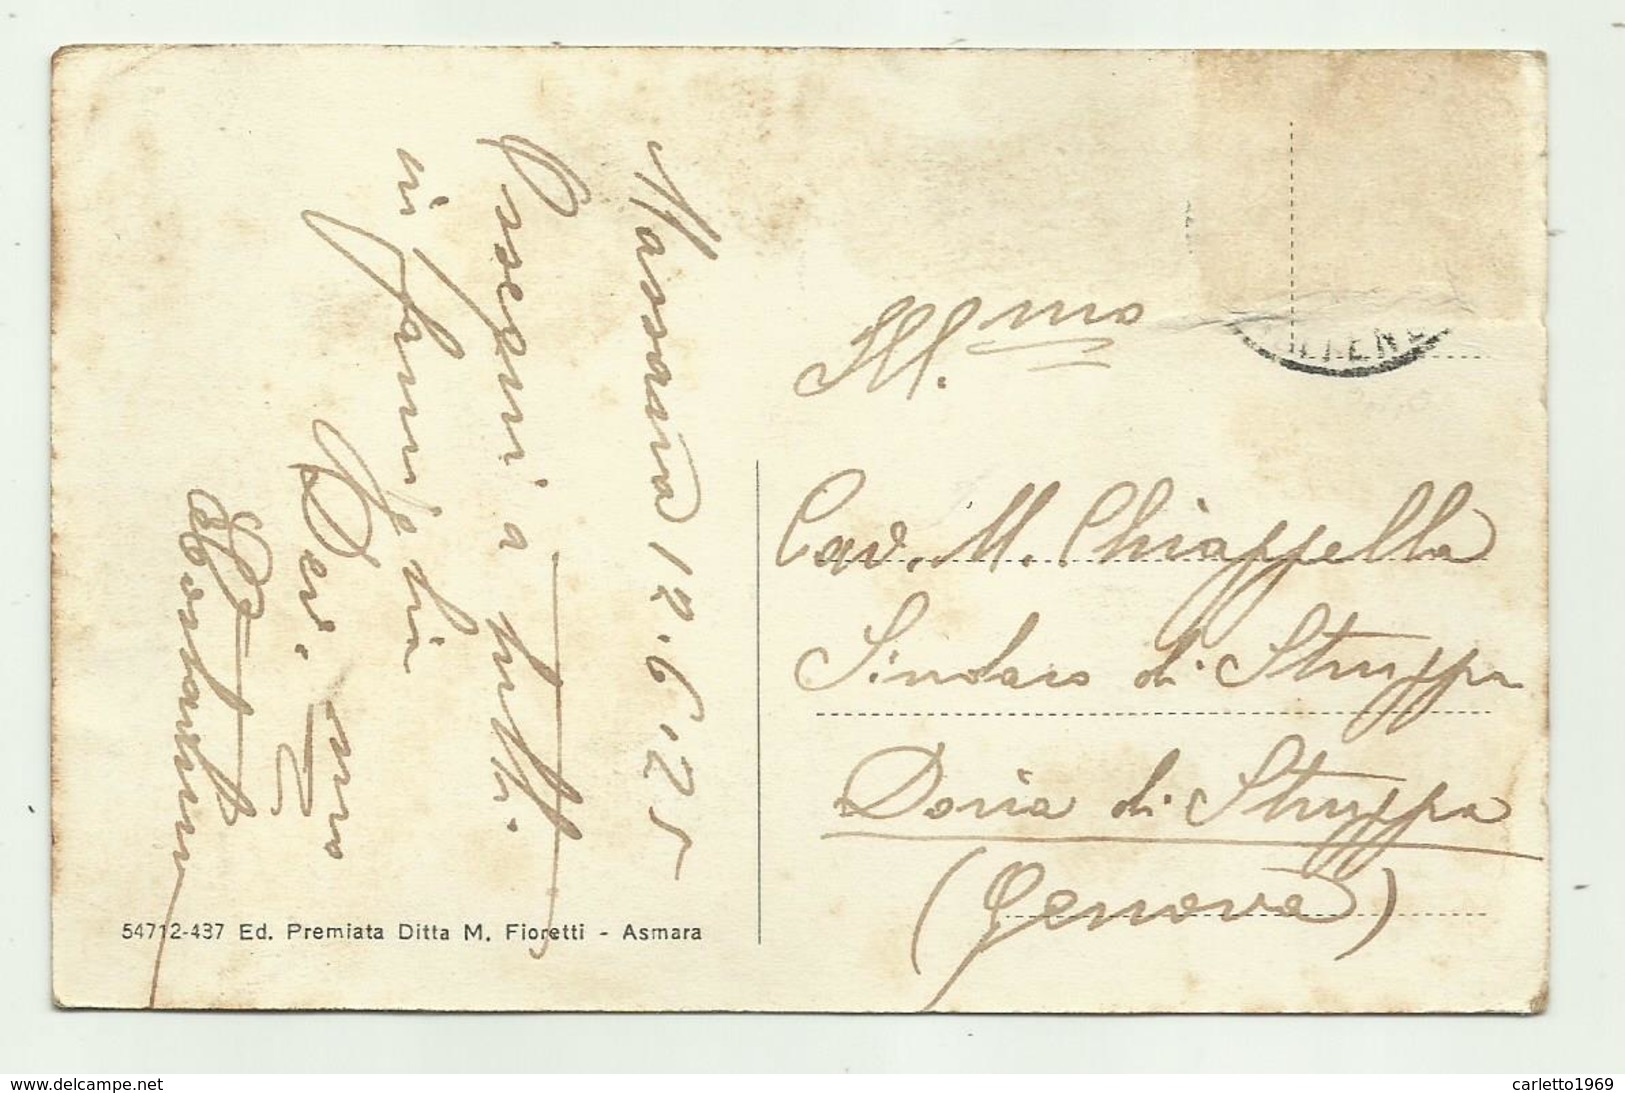 Massaua 12.6.25
Ossequi a tutti
in famiglia
Dev. mo
Ill.mo
Cav. M. Chiappella
Sindaco di Struppa
Doria di Struppa
(Genova)
54712-437 Ed. Premiata Ditta M. Fioretti - Asmara
www.delcampe.net
carletto1969